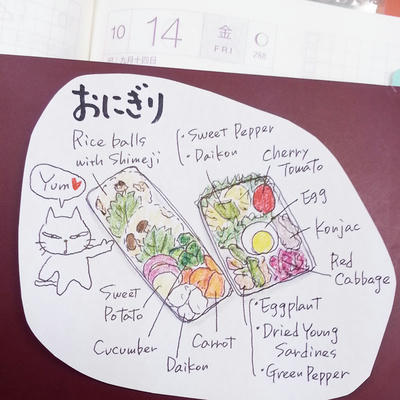 10
14
金
FRI
288
旧 九月十四日
おにぎり
Rice balls
with Shimeji
• Sweet Pepper
• Daikon
Cherry
Tomato
Yum♥
Egg
Konjac
Red
Cabbage
Sweet
Potato
Cucumber
Daikon
Carrot
• Eggplant
• Dried Young
Sardines
• Green Pepper